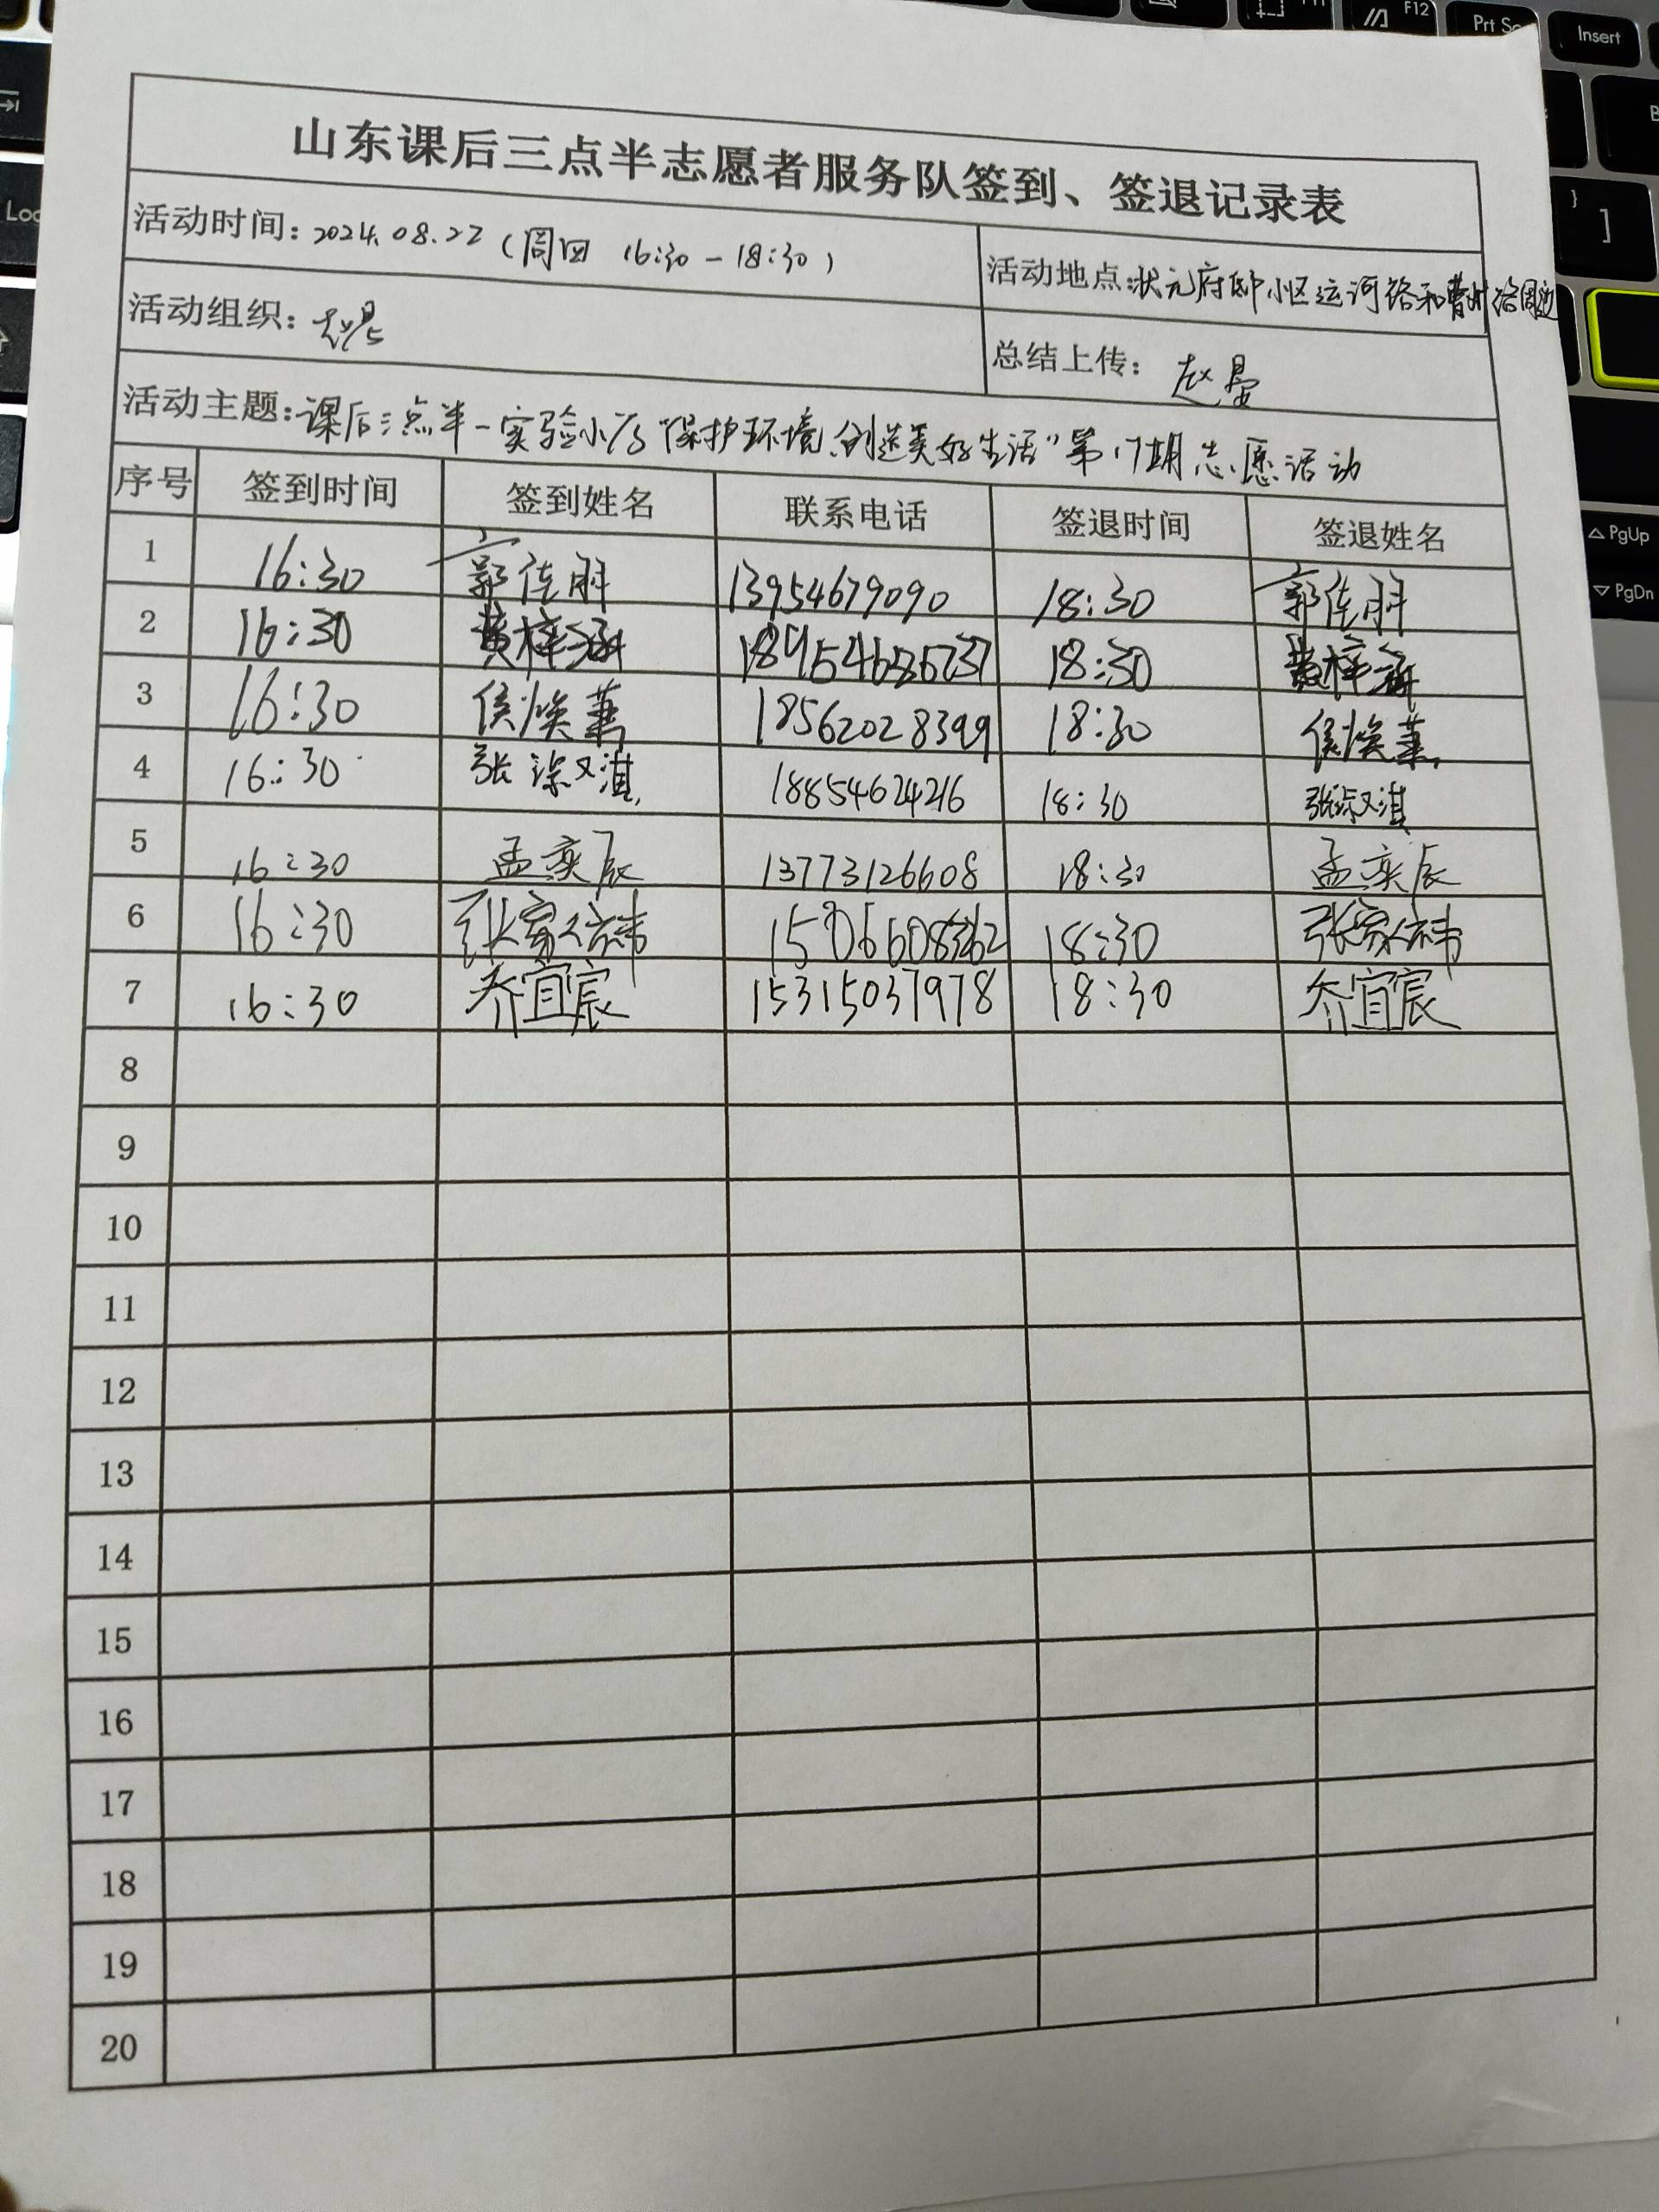 山东课后三点半志愿者服务队签到、签退记录表
活动时间：2024.08.22（周四 16:30-18:30）
活动地点：状元府邸小区运河路和曹州路周边
活动组织：赵晏
总结上传：赵晏
活动主题：课后三点半-实验小学"保护环境、创造美好生活"第17期志愿活动
序号 签到时间 签到姓名 联系电话 签退时间 签退姓名
1 16:30 郭佳 13954679090 18:30 郭佳
2 16:30 黄梓涵 18:30 黄梓涵
3 16:30 侯焕 18562028399 18:30 侯焕
4 16:30 张 18854624216 18:30 张
5 16:30 孟奕辰 13773126608 18:30 孟奕辰
6 16:30 张家 18:30 张家
7 16:30 乔宜宸 15315037978 18:30 乔宜宸
8
9
10
11
12
13
14
15
16
17
18
19
20
F12
Prt Sc
Insert
}
]
PgUp
PgDn
Loc